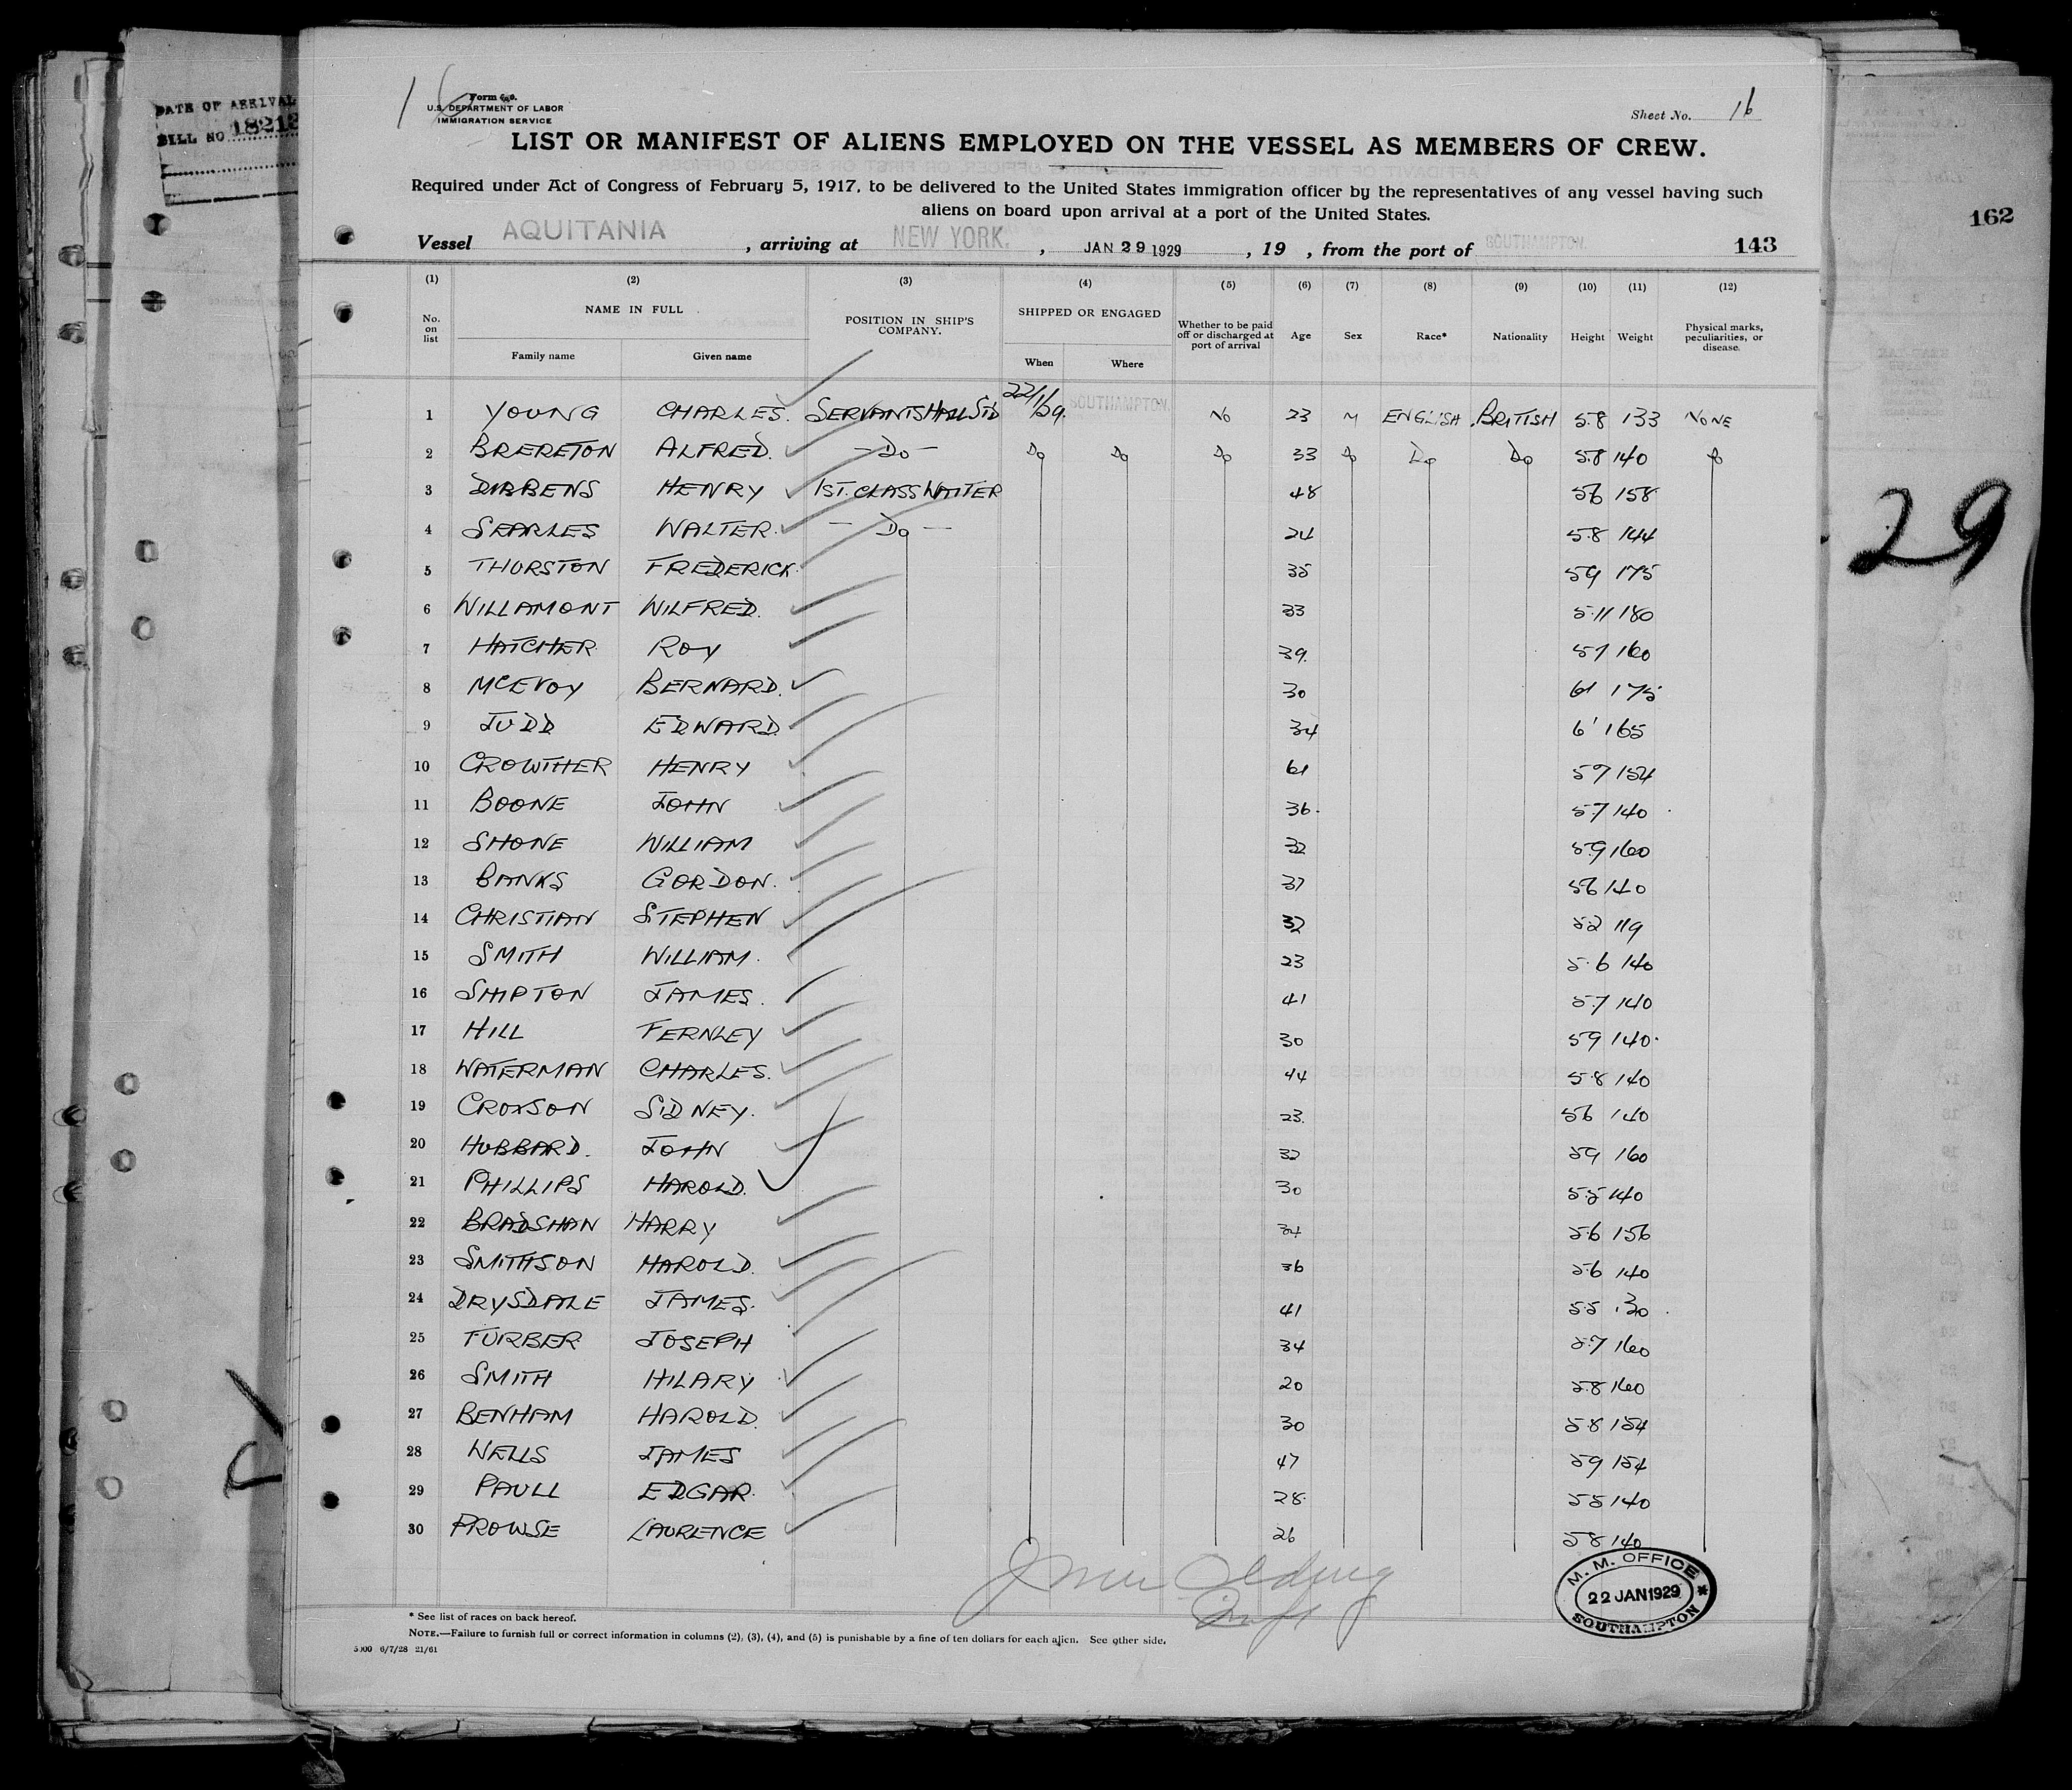 DATE OF ARRIVAL
BILL NO 18213
16
Form 680.
U.S. DEPARTMENT OF LABOR
IMMIGRATION SERVICE
Sheet No. 16
LIST OR MANIFEST OF ALIENS EMPLOYED ON THE VESSEL AS MEMBERS OF CREW.
Required under Act of Congress of February 5, 1917, to be delivered to the United States immigration officer by the representatives of any vessel having such
aliens on board upon arrival at a port of the United States.
162
Vessel AQUITANIA , arriving at NEW YORK. , JAN 29 1929 , 19 , from the port of SOUTHAMPTON. 143
(1) (2) (3) (4) (5) (6) (7) (8) (9) (10) (11) (12)
No. on list NAME IN FULL Family name Given name POSITION IN SHIP'S COMPANY. SHIPPED OR ENGAGED When Where Whether to be paid off or discharged at port of arrival Age Sex Race* Nationality Height Weight Physical marks, peculiarities, or disease.
1 YOUNG CHARLES. SERVANTS HALL STD 22/1/29. SOUTHAMPTON. NO 23 M ENGLISH BRITISH 5.8 133 NONE
2 BRERETON ALFRED. - Do - Do Do Do 33 Do Do Do 5.8 140 Do
3 DIBBENS HENRY 1ST. CLASS WAITER 48 56 158
4 SEARLES WALTER. - Do - 24 5.8 144
5 THURSTON FREDERICK. 35 59 175
6 WILLAMONT WILFRED. 33 5.11 180
7 HATCHER ROY 39. 57 160
8 MCEVOY BERNARD. 30 61 175
9 JUDD EDWARD. 34 6' 165
10 CROWTHER HENRY 61 59 154
11 BOONE JOHN 36. 5.7 140
12 SHONE WILLIAM 32 5.9 160
13 BANKS GORDON. 37 56 140
14 CHRISTIAN STEPHEN 32 52 119
15 SMITH WILLIAM. 23 5.6 140
16 SHIPTON JAMES. 41 5.7 140
17 HILL FERNLEY 30 59 140.
18 WATERMAN CHARLES. 44 5.8 140
19 CROXSON SIDNEY. 23. 56 140
20 HUBBARD. JOHN 32 59 160
21 PHILLIPS HAROLD. 30 5.5 140
22 BRADSHAW HARRY 34 5.6 156
23 SMITHSON HAROLD. 36 5.6 140
24 DRYSDALE JAMES. 41 5.5 130
25 FURBER JOSEPH 34 5.7 160
26 SMITH HILARY 20 5.8 160
27 BENHAM HAROLD. 30 5.8 154
28 WELLS JAMES 47 59 154
29 PAULL EDGAR. 28. 55 140
30 PROWSE LAURENCE 26 58 140
29
M. M. OFFICE
22 JAN 1929
SOUTHAMPTON
* See list of races on back hereof.
NOTE.—Failure to furnish full or correct information in columns (2), (3), (4), and (5) is punishable by a fine of ten dollars for each alien. See other side.
5000 6/7/28 21/61